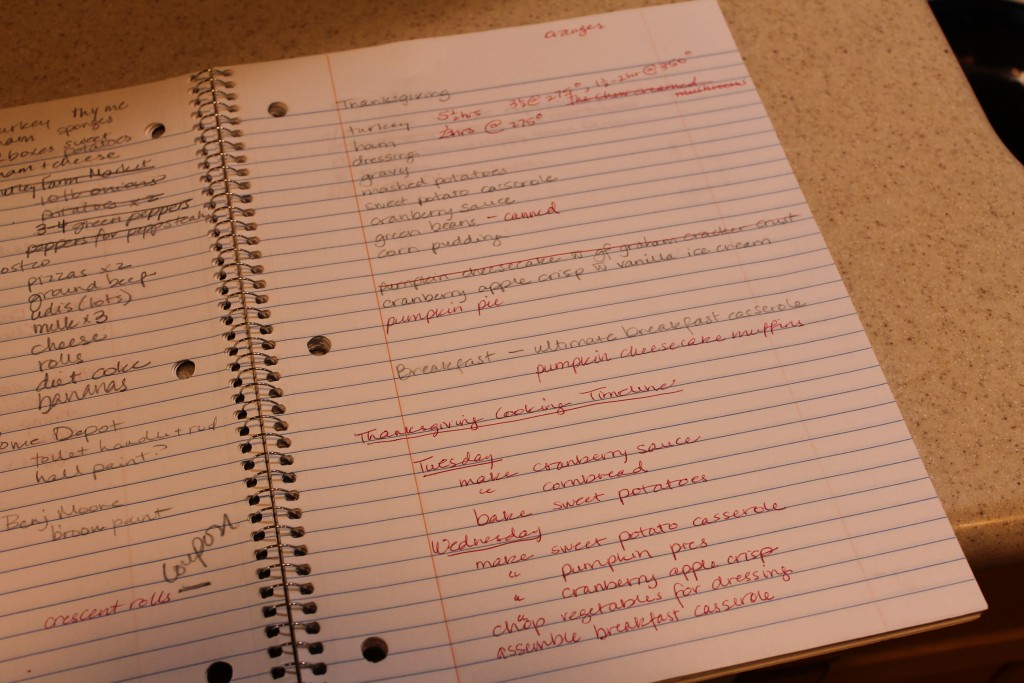 turkey thyme
ham sponges
boxes sweet potatoes
ham + cheese
Farm Market
10 lb onions
potatoes x 2
3-4 green peppers
peppers for
ostco
pizzas x 2
ground beef
(lots)
milk x 3
cheese
rolls
diet coke
bananas
ome Depot
toilet handle + rod
hall paint?
Benj. Moore
broom paint
coupon
crescent rolls —
Oranges
Thanksgiving
turkey 5½ hrs 3½ @ 275°, 1½-2hr @ 350°
ham 2hrs @ 275° mushrooms
dressing
gravy
mashed potatoes
sweet potato casserole
cranberry sauce
green beans - canned
corn pudding
pumpkin cheesecake w gf graham cracker crust
cranberry apple crisp w vanilla ice cream
pumpkin pie
Breakfast - ultimate breakfast casserole
pumpkin cheesecake muffins
Thanksgiving Cooking Timeline
Tuesday
make cranberry sauce
" cornbread
bake sweet potatoes
Wednesday
make sweet potato casserole
" pumpkin pies
" cranberry apple crisp
chop vegetables for dressing
assemble breakfast casserole